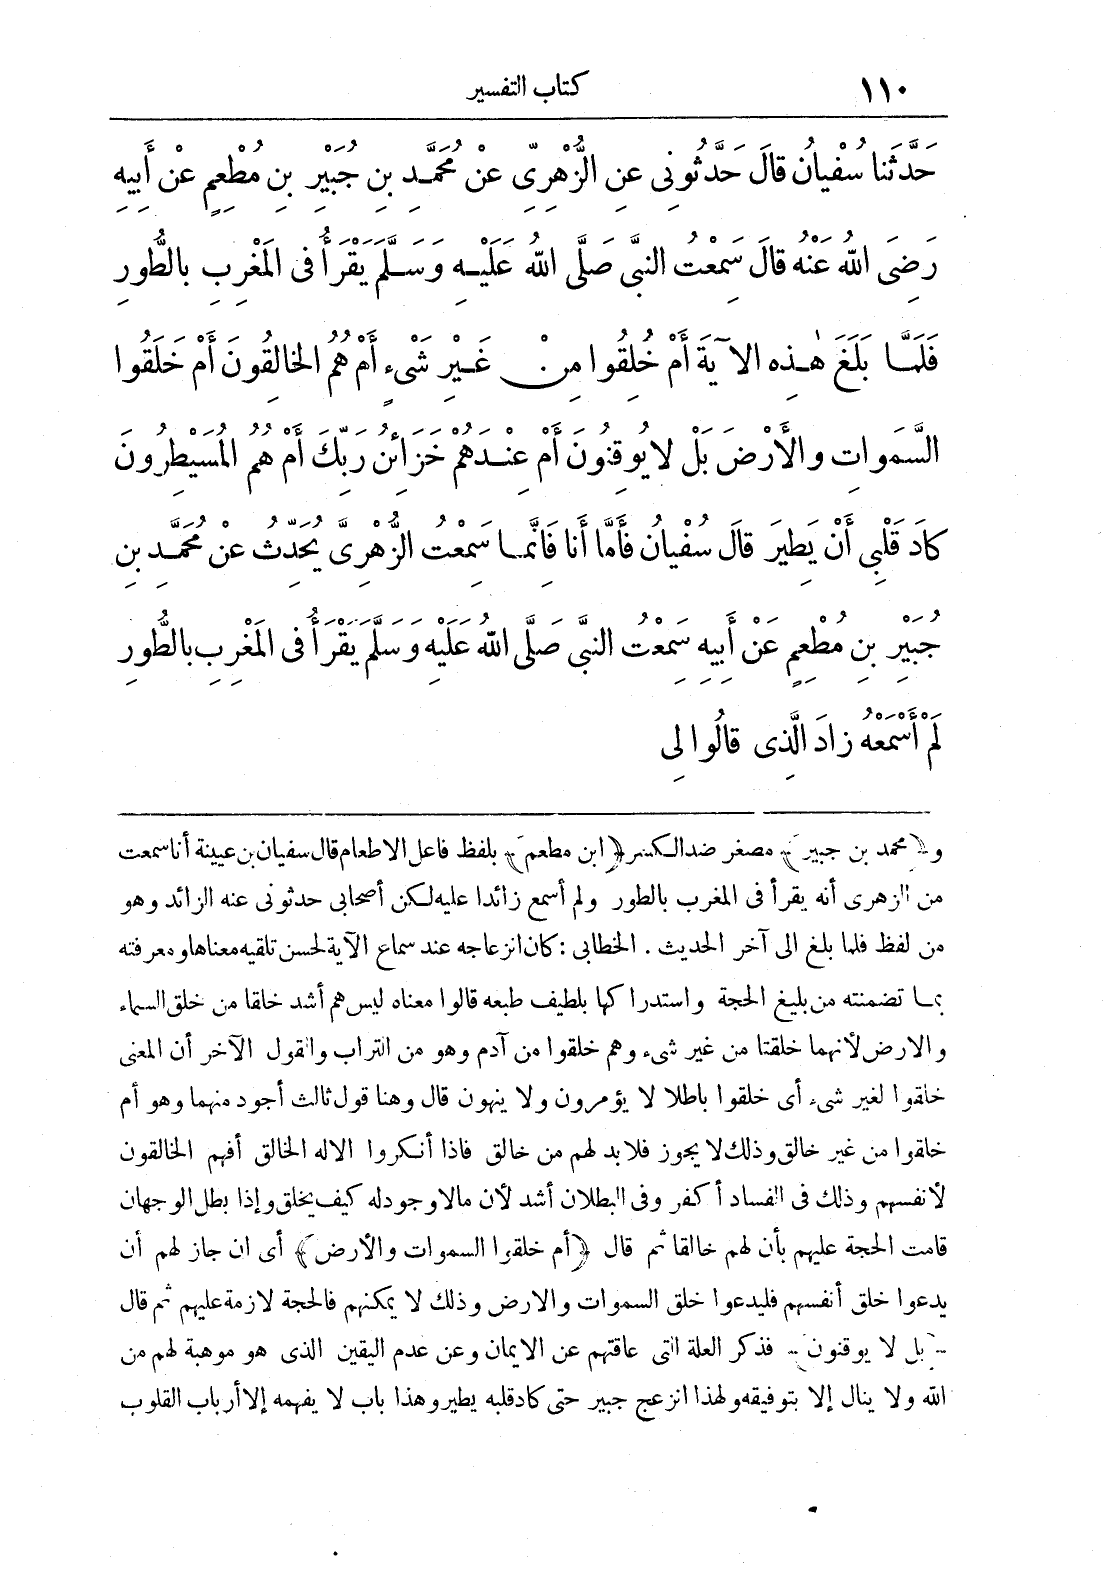 ١١٠ كتاب التفسير
حَدَّثَنا سُفْيانُ قالَ حَدَّثُونِى عنِ الزُّهْرِىِّ عنْ مُحَمَّدِ بنِ جُبَيْرِ بنِ مُطْعِمٍ عنْ أَبِيهِ
رَضِىَ اللهُ عَنْهُ قالَ سَمِعْتُ النبىَّ صَلَّى اللهُ عَلَيْهِ وَسَلَّمَ يَقْرَأُ فى المَغْرِبِ بالطُّورِ
فَلَمَّا بَلَغَ هٰذِهِ الآيَةَ أَمْ خُلِقُوا مِنْ غَيْرِ شَىْءٍ أَمْ هُمُ الخالِقُونَ أَمْ خَلَقُوا
السَّمَواتِ والأَرْضَ بَلْ لا يُوقِنُونَ أَمْ عِنْدَهُمْ خَزَائِنُ رَبِّكَ أَمْ هُمُ المُسَيْطِرُونَ
كادَ قَلْبِى أَنْ يَطِيرَ قالَ سُفْيانُ فأَمَّا أَنا فَإِنَّما سَمِعْتُ الزُّهْرِىَّ يُحَدِّثُ عنْ مُحَمَّدِ بنِ
جُبَيْرِ بنِ مُطْعِمٍ عَنْ أَبِيهِ سَمِعْتُ النبىَّ صَلَّى اللهُ عَلَيْهِ وَسَلَّمَ يَقْرَأُ فى المَغْرِبِ بالطُّورِ
لَمْ أَسْمَعْهُ زادَ الَّذِى قالُوا لِى
و﴿محمد بن جبير﴾ مصغر ضد الكسر ﴿ابن مطعم﴾ بلفظ فاعل الاطعام قال سفيان بن عيينة أنا سمعت
من الزهرى أنه يقرأ فى المغرب بالطور ولم أسمع زائدا عليه لكن أصحابى حدثونى عنه الزائد وهو
من لفظ فلما بلغ الى آخر الحديث . الخطابى : كان انزعاجه عند سماع الآية لحسن تلقيه معناها ومعرفته
بما تضمنته من بليغ الحجة واستدراكها بلطيف طبعه قالوا معناه ليس هم أشد خلقا من خلق السماء
والارض لأنهما خلقتا من غير شىء وهم خلقوا من آدم وهو من التراب والقول الآخر أن المعنى
خلقوا لغير شىء أى خلقوا باطلا لا يؤمرون ولا ينهون قال وهنا قول ثالث أجود منهما وهو أم
خلقوا من غير خالق وذلك لا يجوز فلا بد لهم من خالق فاذا أنكروا الاله الخالق أفهم الخالقون
لأنفسهم وذلك فى الفساد أكفر وفى البطلان أشد لأن مالا وجود له كيف يخلق وإذا بطل الوجهان
قامت الحجة عليهم بأن لهم خالقا ثم قال ﴿أم خلقوا السموات والأرض﴾ أى ان جاز لهم أن
يدعوا خلق أنفسهم فليدعوا خلق السموات والارض وذلك لا يمكنهم فالحجة لازمة عليهم ثم قال
﴿بل لا يوقنون﴾ فذكر العلة التى عاقتهم عن الايمان وعن عدم اليقين الذى هو موهبة لهم من
الله ولا ينال إلا بتوفيقه ولهذا انزعج جبير حتى كاد قلبه يطير وهذا باب لا يفهمه إلا أرباب القلوب